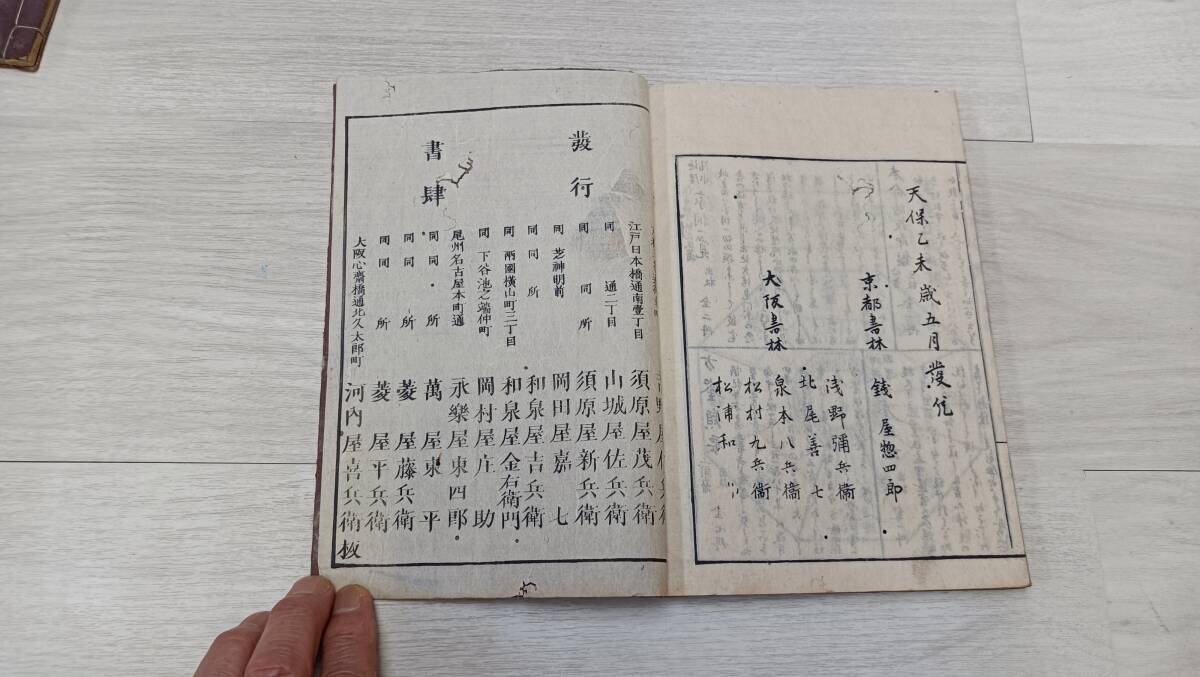 天保乙未歳五月發兌
京都書林 錢屋惣四郎
淺野彌兵衞
大阪書林 北尾善七
泉本八兵衞
松村九兵衞
松浦和
發行
書肆
江戸日本橋通南壹丁目 須原屋茂兵衛
同 通二丁目 山城屋佐兵衛
同 同所 須原屋新兵衛
同 芝神明前 岡田屋嘉七
同 同所 和泉屋吉兵衛
同 兩國橫山町三丁目 和泉屋金右衛門
同 下谷池之端仲町 岡村屋庄助
尾州名古屋本町通 永樂屋東四郎
同 同所 萬屋東平
同 同所 菱屋藤兵衛
同 同所 菱屋平兵衛
大阪心齋橋通北久太郎町 河内屋喜兵衛板